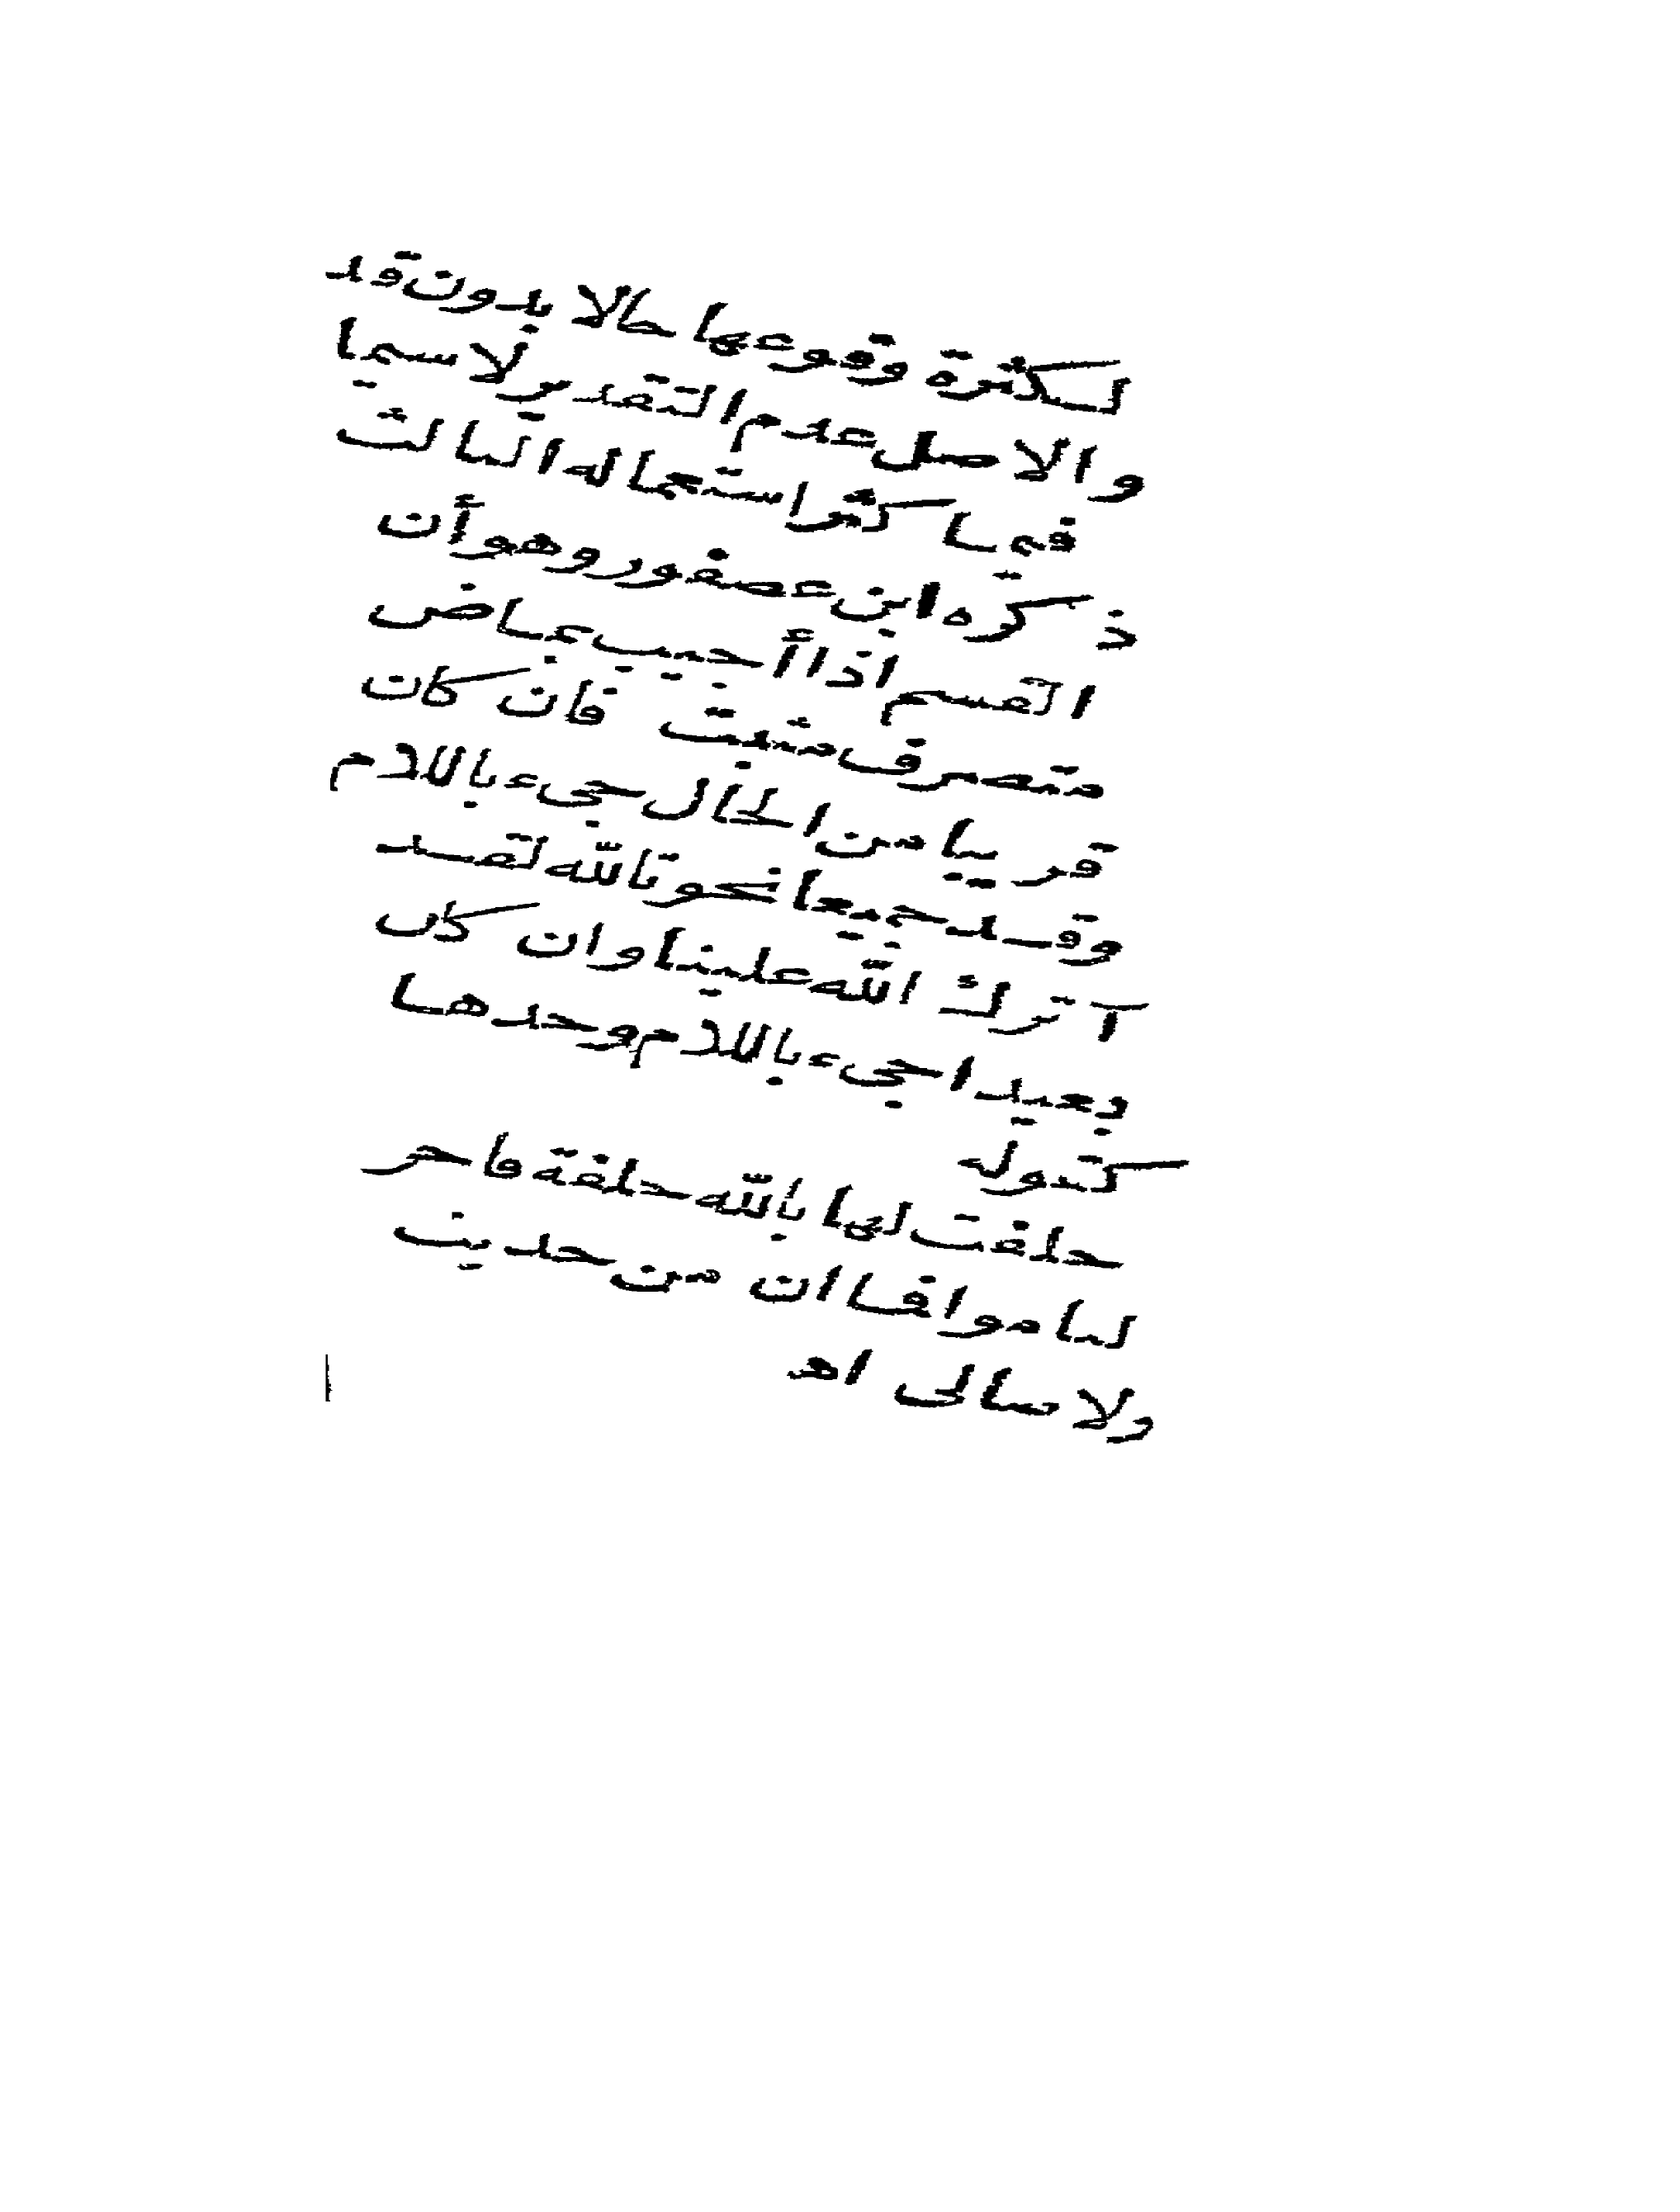 لكثرة وقوعها حالا بدون قد
والاصل عدم التقدير لا سيما
فيما كثر استعماله الثالث
ذكره ابن عصفور وهو أن
القسم اذا أجيب بماض
متصرف مثبت فان كان
قريبا من الحال جىء باللام
وقد جميعا نحو تالله لقد
آثرك الله علينا وان كان
بعيدا جىء باللام وحدها
كقوله
حلفت لها بالله حلفة فاجر
لنا موافا ان من حديث
ولا صالى اه